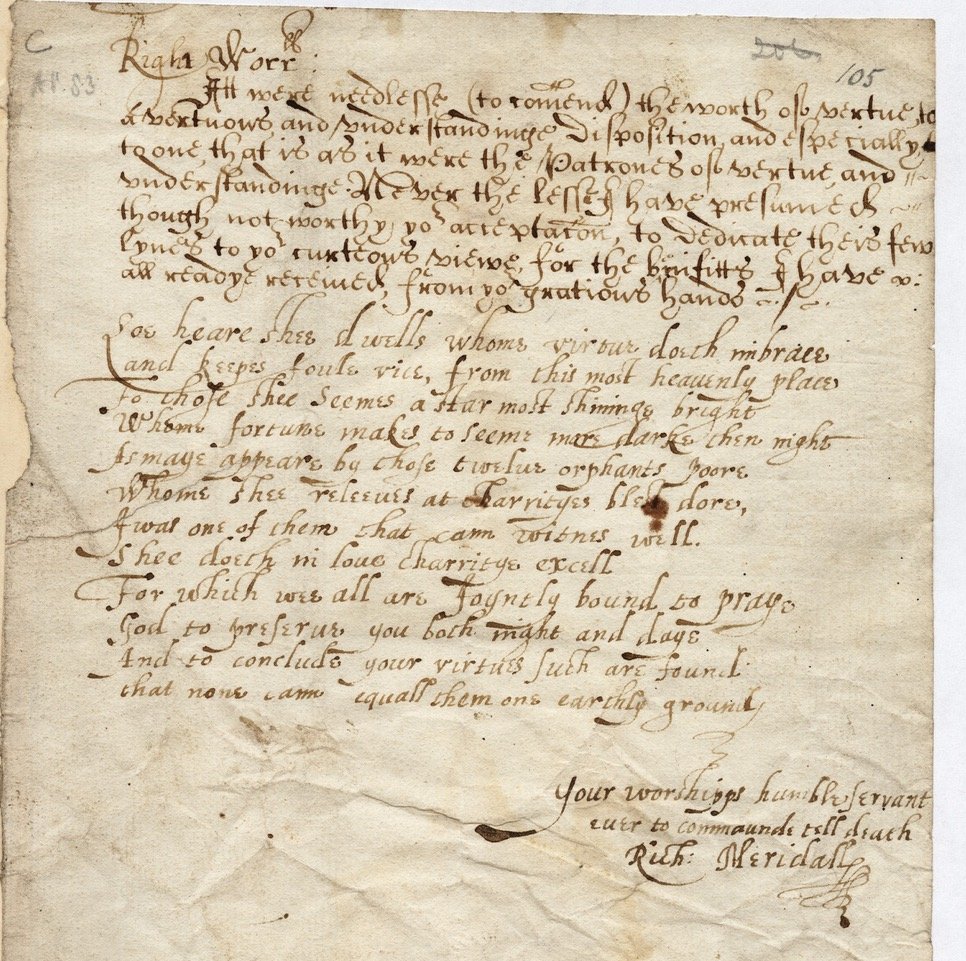 C
206
105
AP. 83
Right Worr:ll
Itt were needlesse (to comend) the worth of vertue, to
a vertuous, and understandinge Disposition, and especially
to one, that is as it were the Patrones of vertue, and
understandinge. Never the lesse I have presumed
though not worthy, yor acceptacon, to Dedicate theis few
Lynes to yor curteous viewe, for the benifitts I have
all readye received, from yor gratious hands
Loe heare shee dwells whome virtue doeth imbrace
and keepes foule vice, from this most heavenly place
to those shee seemes a star most shininge bright
Whome fortune makes to seeme more darke then night
As maye appeare by those twelve orphants poore
Whome shee releeves at Charrityes blest dore,
I was one of them that cann witnes well.
Shee doeth in love charritye excell
For which wee all are Joyntly bound to praye
God to preserve you both night and daye
And to conclude your virtues such are found
that none cann equall them one earthly ground
Your worshipps humble servant
ever to commaunde tell death
Rich: Meridall